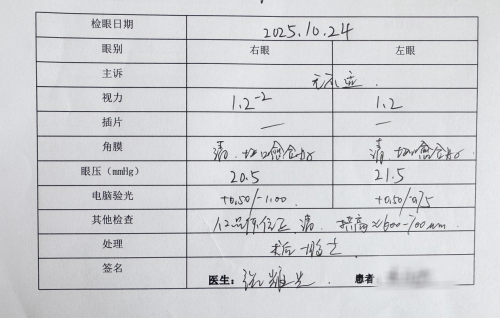 检眼日期 2025.10.24
眼别 右眼 左眼
主诉 无不适.
视力 1.2⁻² 1.2
插片 — —
角膜 清.切口愈合好 清.切口愈合好
眼压（mmHg） 20.5 21.5
电脑验光 +0.50/-1.00 +0.50/-0.75
其他检查 人工晶体位正 清. 拱高≈600-700um
处理 术后
签名 医生: 患者